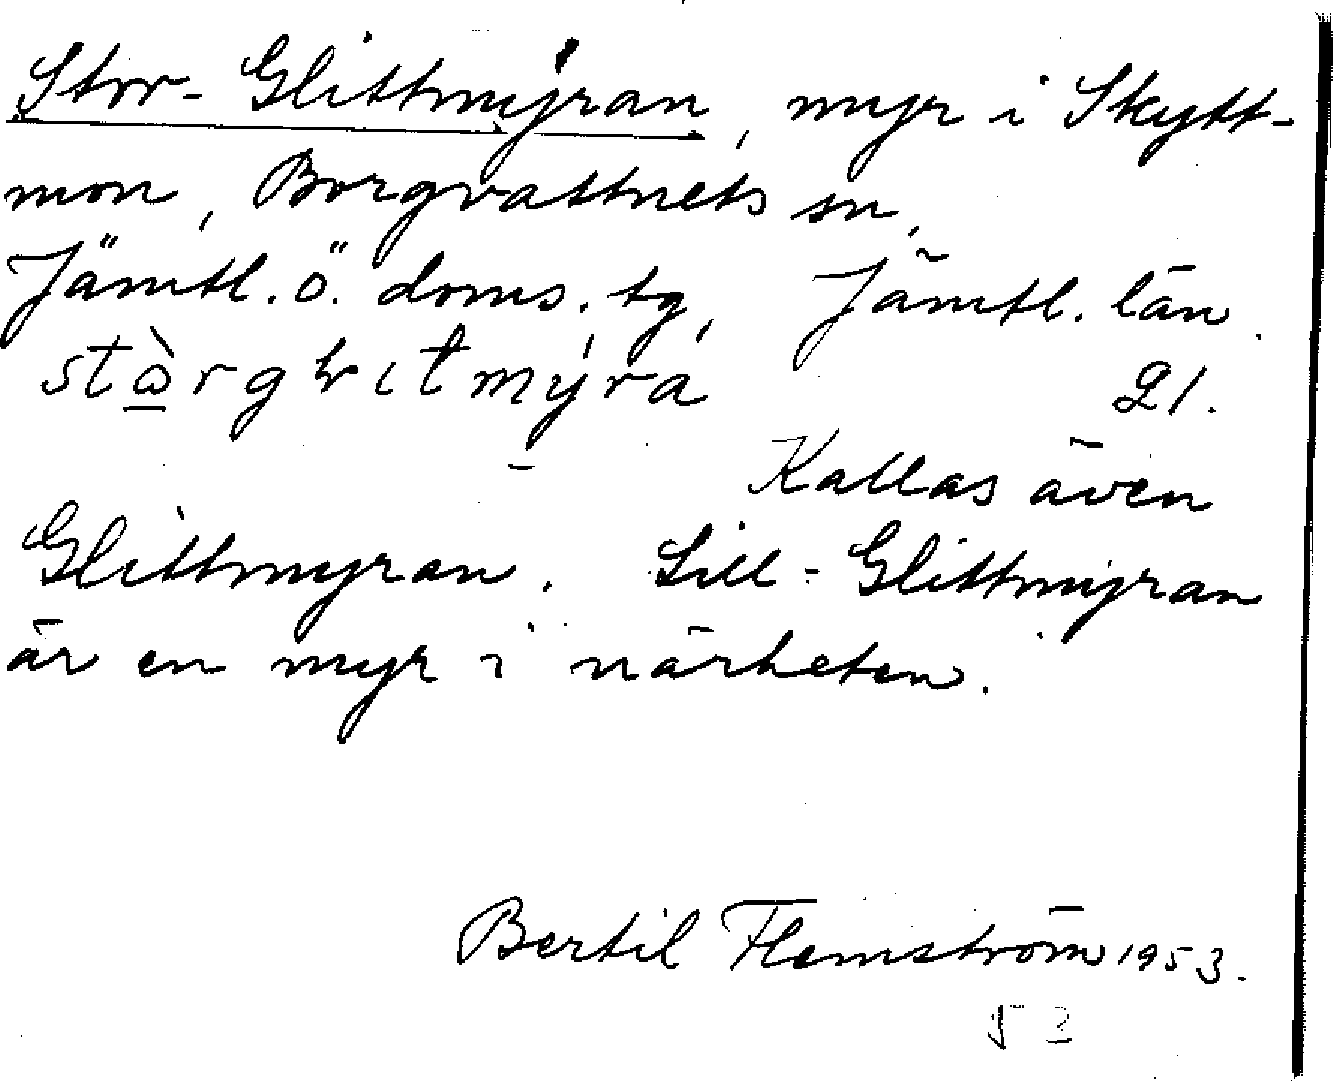 Stor-Glittmyran, myr i Skytt-
mon, Borgvattnets sn,
Jämtl. ö. doms. tg, Jämtl. län.
21.
Kallas även
Glittmyran. Lill-Glittmyran
är en myr i närheten.
Bertil Flemström 1953.